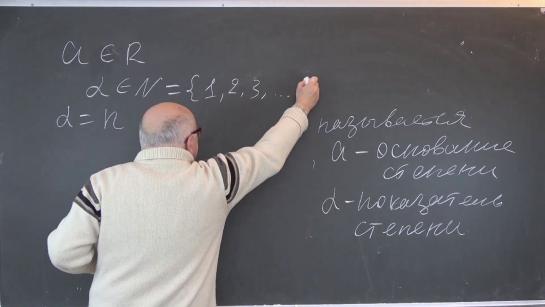 a ∈ R
α ∈ N = {1, 2, 3, ...
α = n
называется
, a - основание
степени
α - показатель
степени